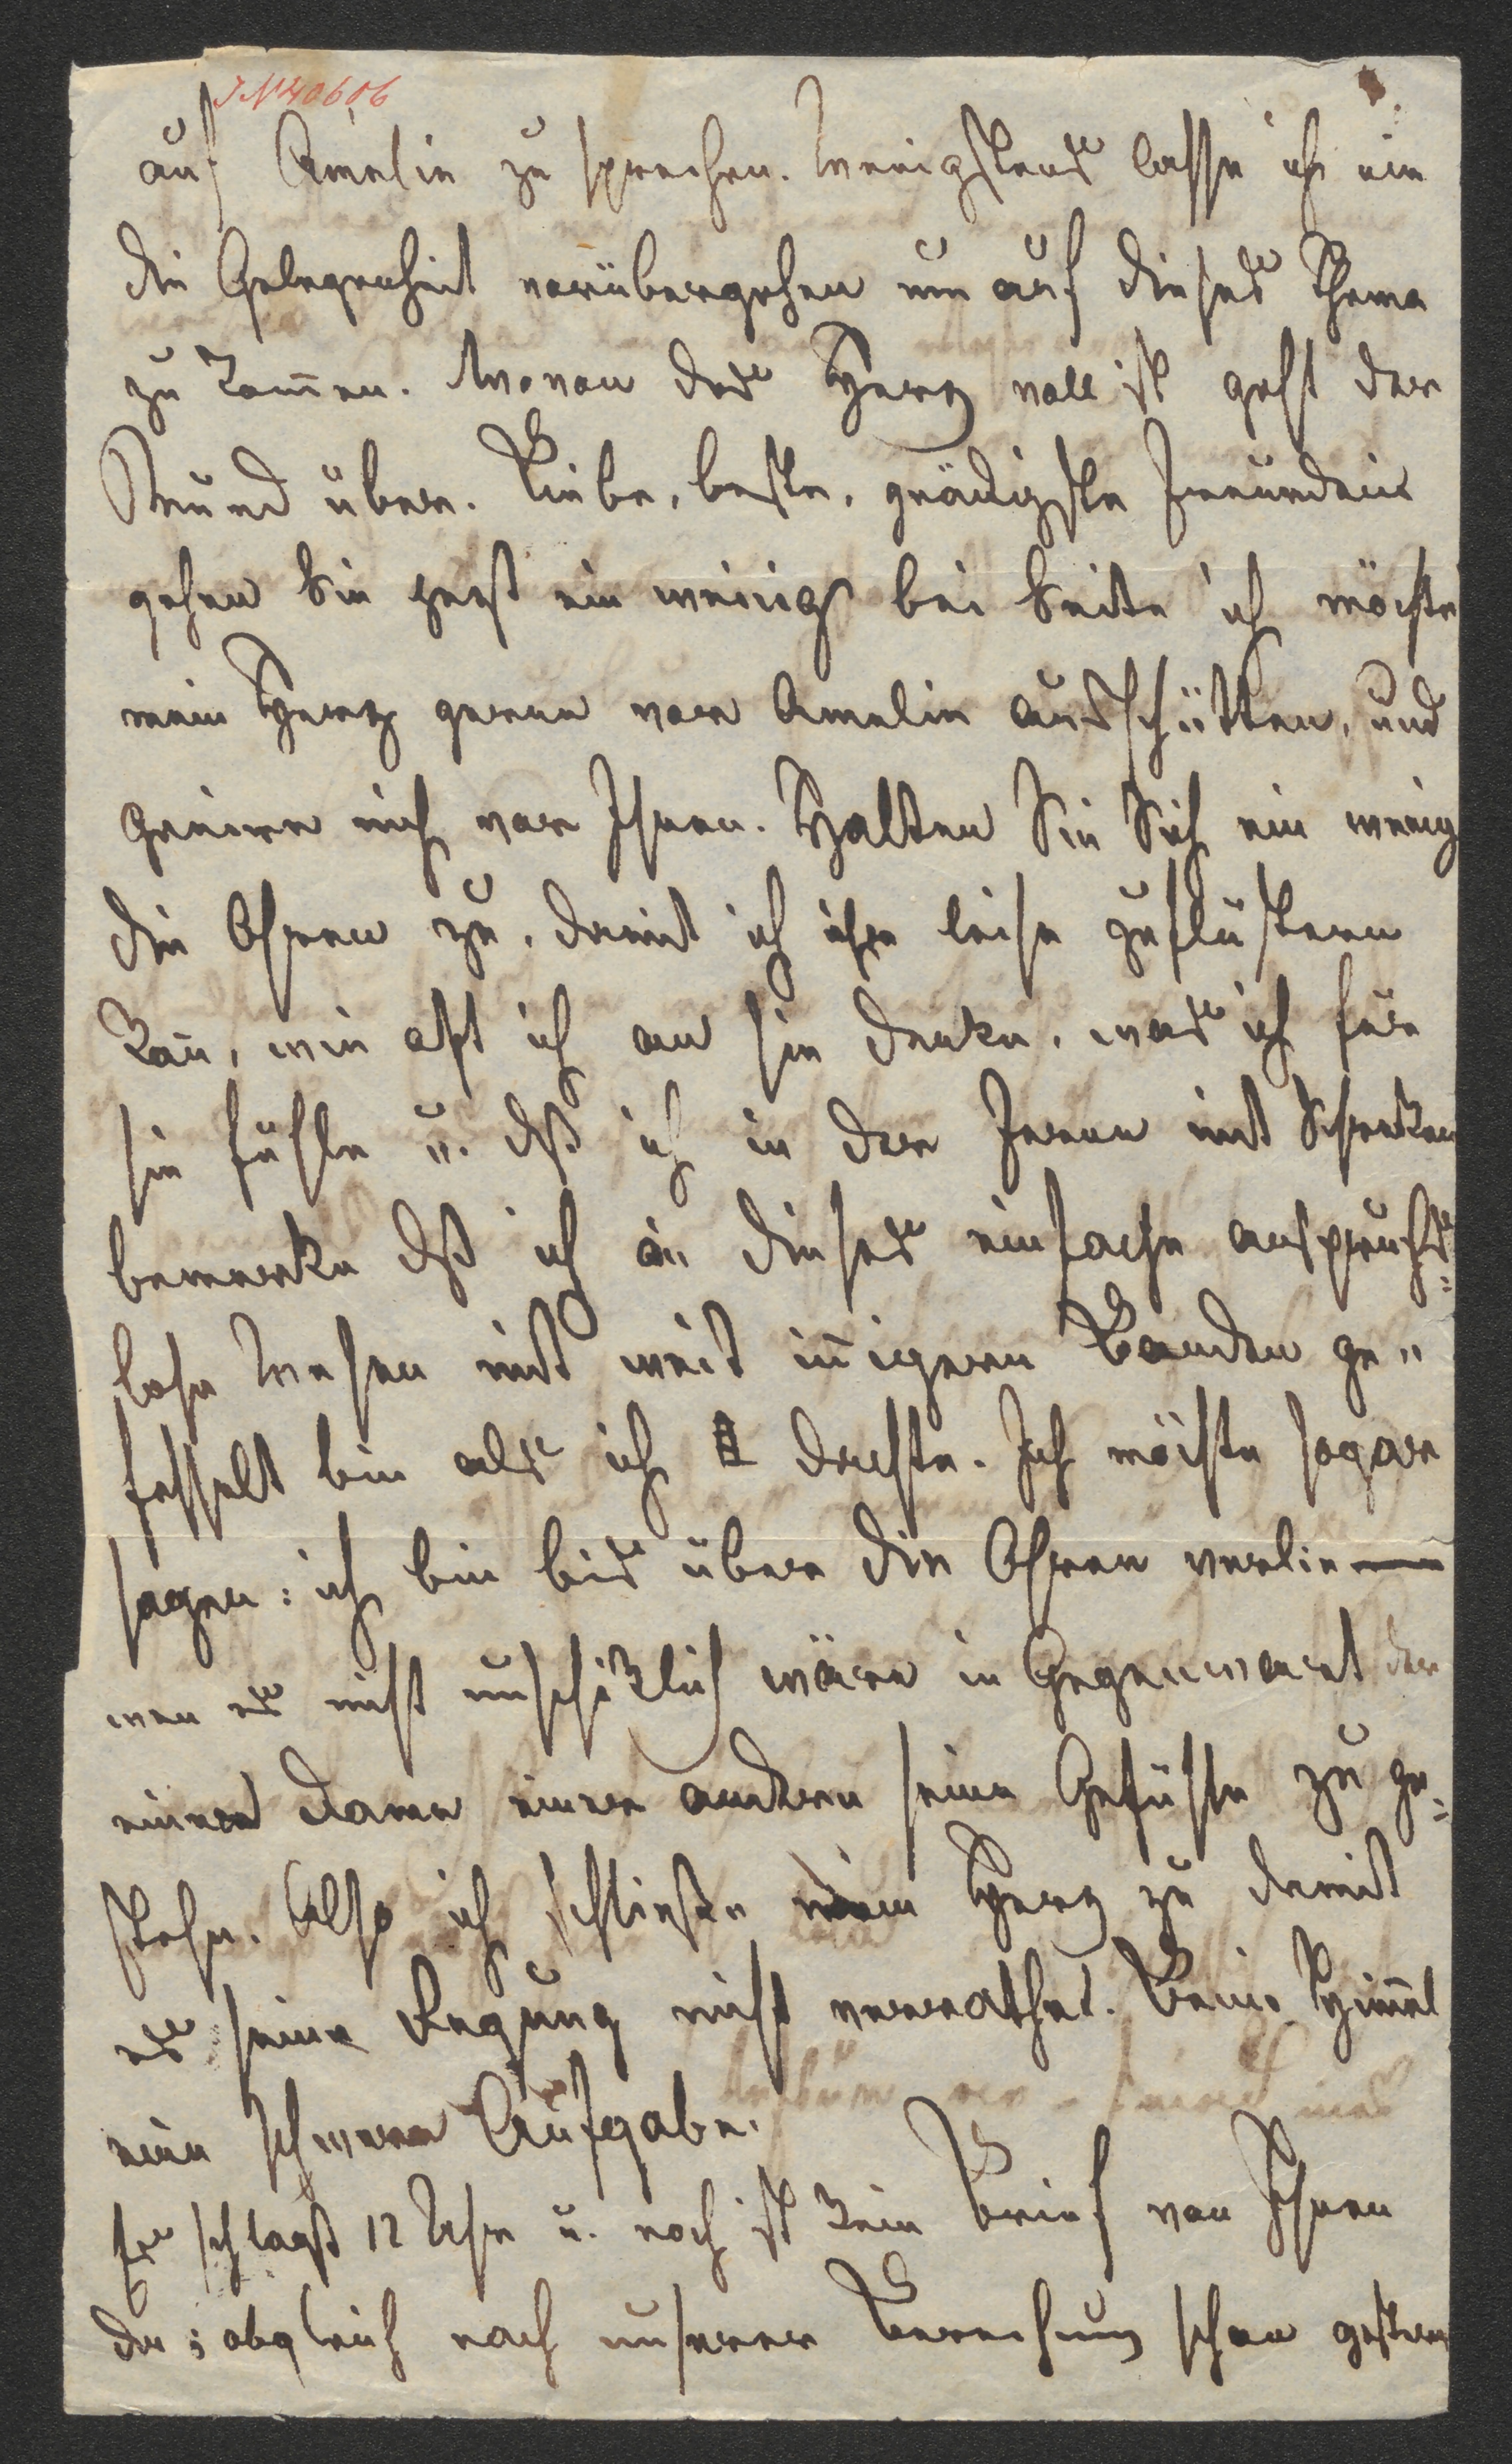 JN 40606
auf Amelie zu sprechen. Wenigstens lasse ich nie
die Gelegenheit vorübergehen um auf dieses Thema
zu kom̄en. Wovon das Herz voll ist geht der
Mund über. Liebe, beste, gnädigste Freundin
gehen Sie jetzt ein wenig bei Seite ich möchte
mein Herz gerne vor Amelie ausschütten, und
genire mich vor Ihnen. Halten Sie Sich ein wenig
die Ohren zu, damit ich ihr leise zuflüstern
kan̄, wie oft ich an sie denke, was ich für
sie fühle u. daß ich in der Ferne mit Schrecken
bemerke daß ich an dieses einfache anspruchs=
lose Wesen mit weit in̄igeren Banden ge=
fesselt bin als ich dachte. Ich möchte sogar
sagen: ich bin bis über die Ohren verlie—
wen es nicht unschicklich wäre in Gegenwart der
einer Dame einer andern seine Gefühle zu ge=
stehn. Also ich schließe mein Herz zu damit
es seine Regung nicht verrathet. Beim Him̄el
eine schwere Aufgabe.
Es schlagt 12 Uhr u. noch ist kein Brief von Ihnen
da; obgleich nach unserer Berechnung schon gestern